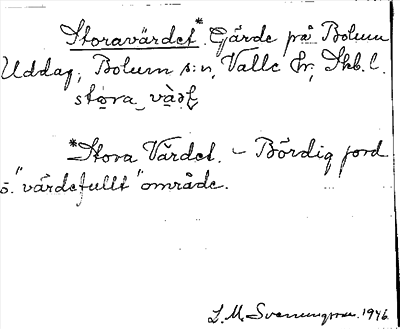 Storavärdet*. Gärde på Bolum
Uddag, Bolum s:n, Valle hr, Skb. l.
stora
*Stora Värdet. – Bördig jord
o. "värdefullt" område.
L. M. Svenungsson. 1946